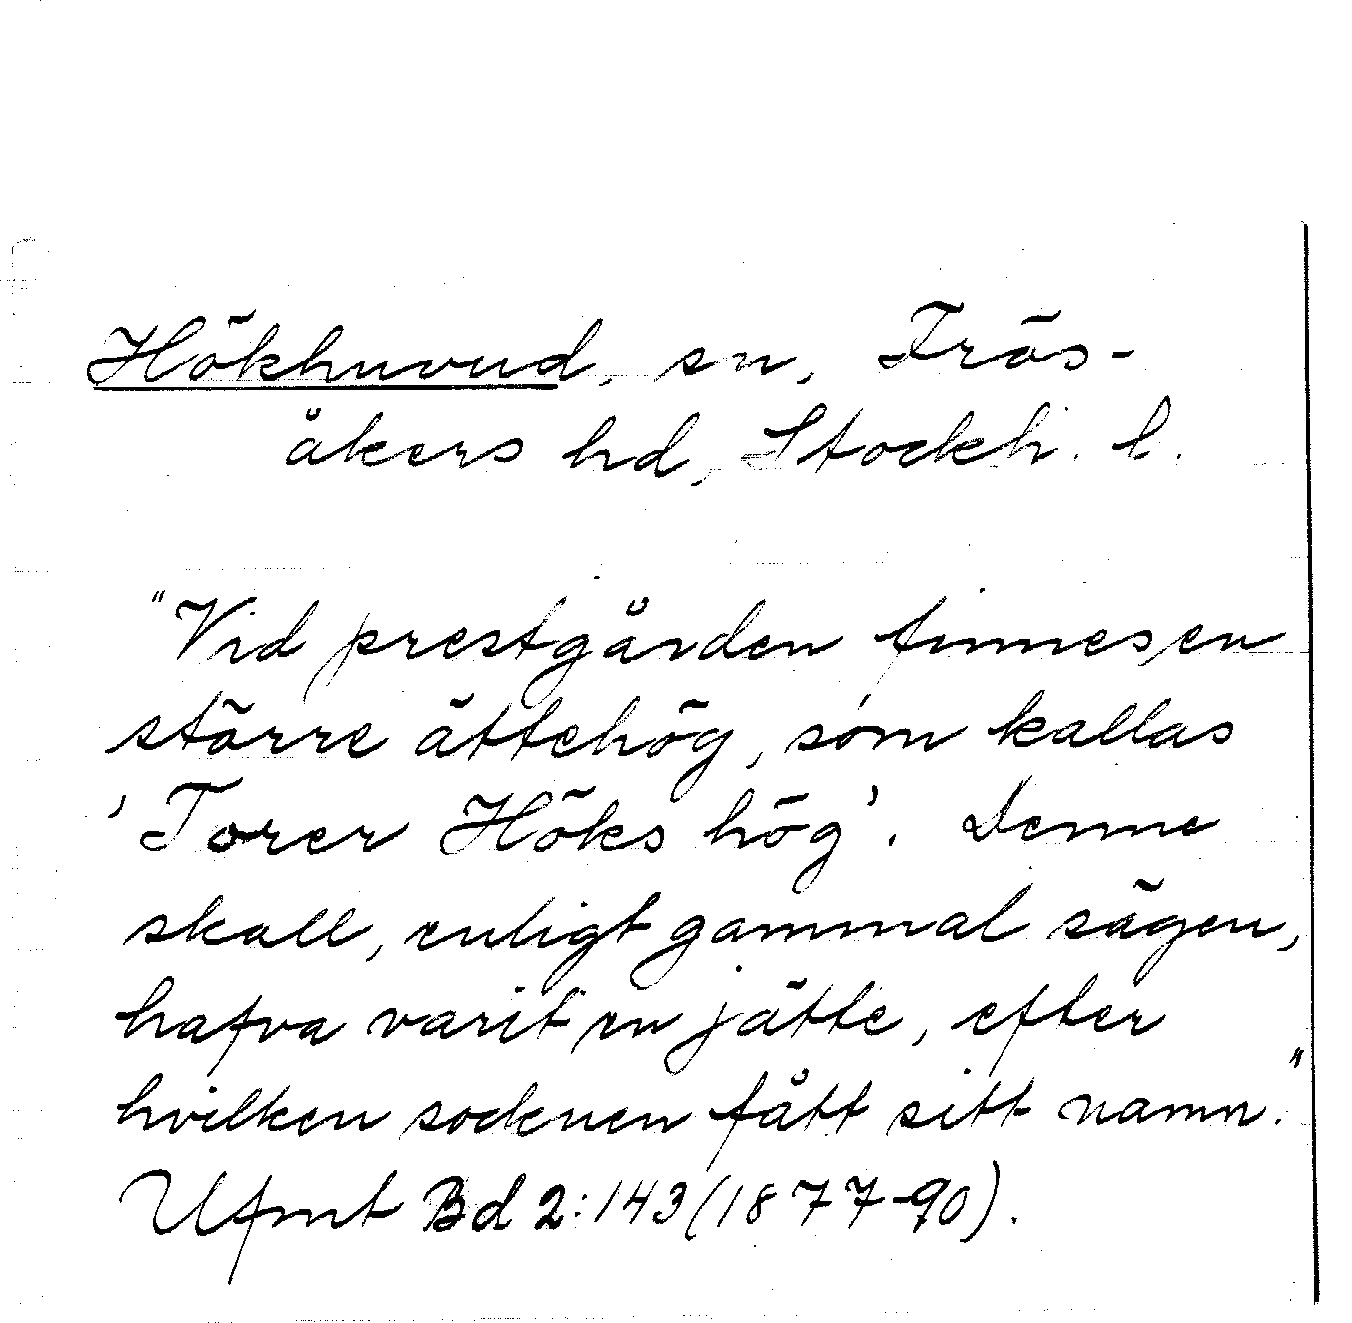 Hökhuvud, sn, Frös-
åkers hd, Stockh. l.
"Vid prestgården finnes en
större ättehög, som kallas
'Torer Höks hög'. Denne
skall, enligt gammal sägen,
hafva varit en jätte, efter
hvilken socknen fått sitt namn."
Ufmt Bd 2:143 (1877-90).